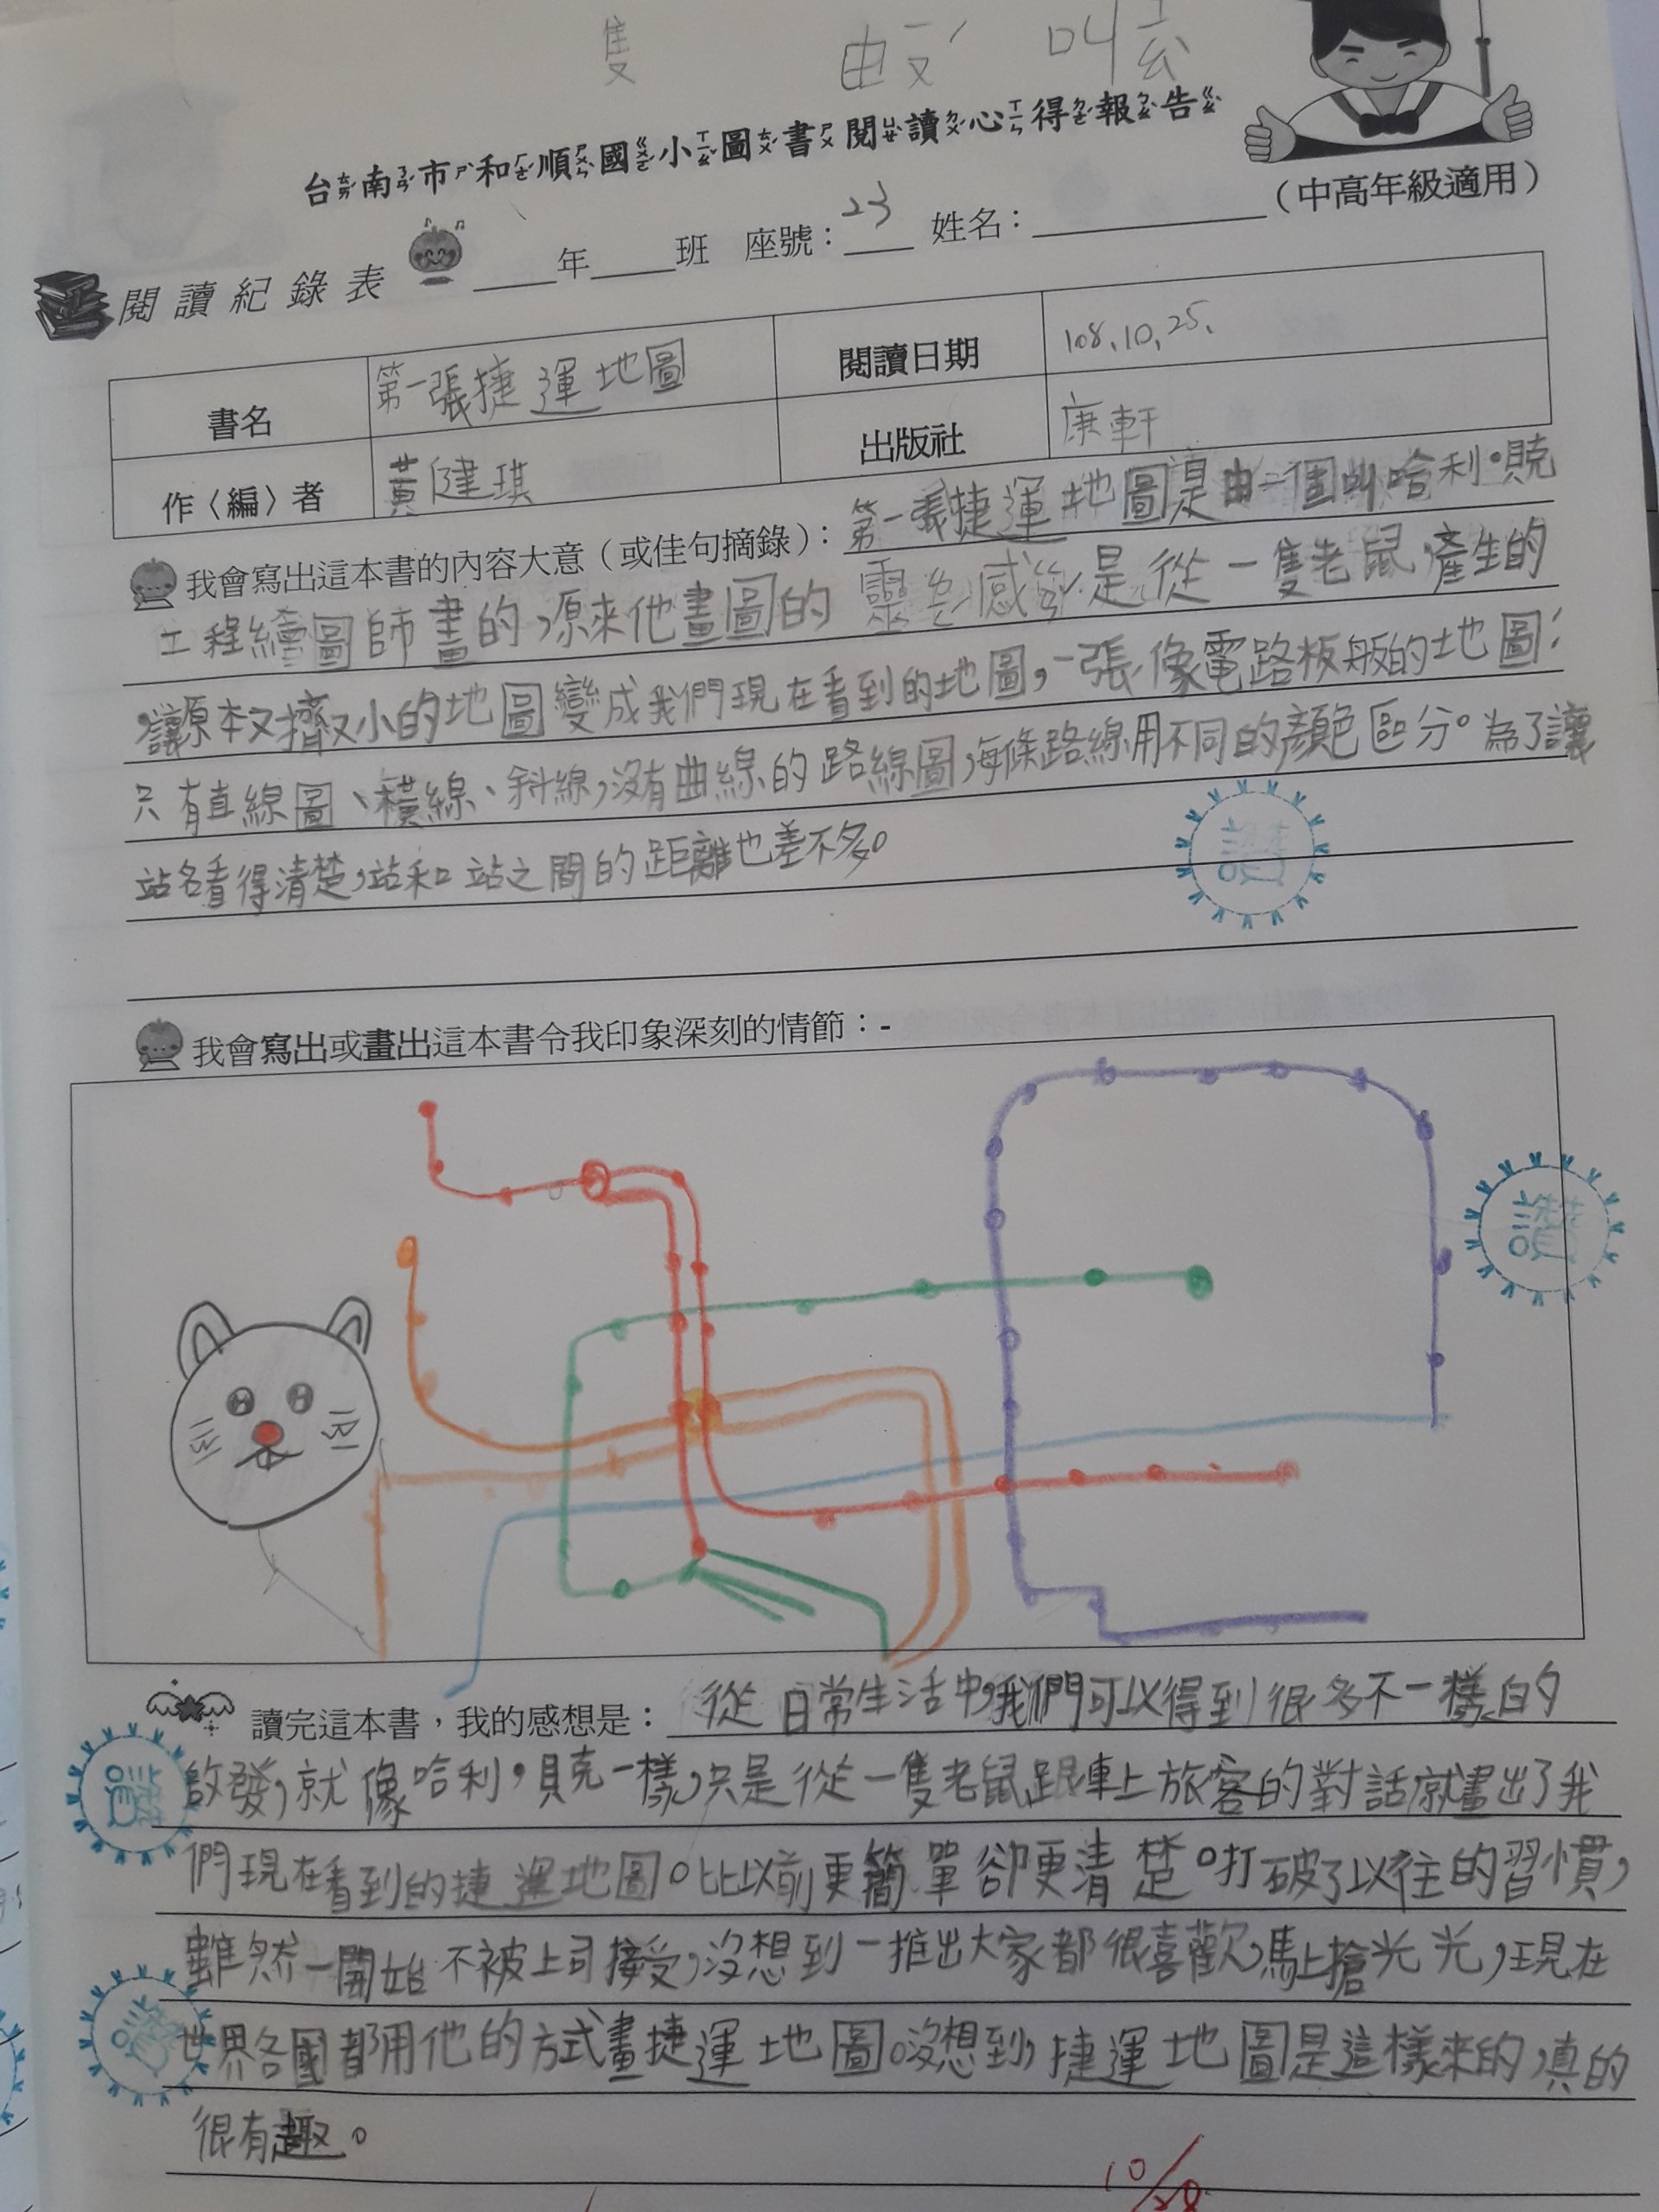 隻 叫
台南市和順國小圖書閱讀心得報告
(中高年級適用)
閱讀紀錄表 ____年____班 座號:23 姓名:________
書名 第一張捷運地圖 閱讀日期 108、10、25、
作〈編〉者 黃健琪 出版社 康軒
我會寫出這本書的內容大意(或佳句摘錄): 第一張捷運地圖是由一個叫哈利•貝克
工程繪圖師畫的,原來他畫圖的靈感是從一隻老鼠產生的
,讓原本又擠又小的地圖變成我們現在看到的地圖,一張像電路板般的地圖:
只有直線圖、橫線、斜線,沒有曲線的路線圖,每條路線用不同的顏色區分。為了讓
站名看得清楚,站和站之間的距離也差不多。
讚
我會寫出或畫出這本書令我印象深刻的情節:-
讚
讀完這本書,我的感想是: 從日常生活中,我們可以得到很多不一樣的
啟發,就像哈利•貝克一樣,只是從一隻老鼠跟車上旅客的對話就畫出了我
們現在看到的捷運地圖。比以前更簡單卻更清楚。打破了以往的習慣,
雖然一開始不被上司接受,沒想到一推出大家都很喜歡,馬上搶光光,現在
世界各國都用他的方式畫捷運地圖。沒想到,捷運地圖是這樣來的,真的
很有趣。
讚
讚
10/28